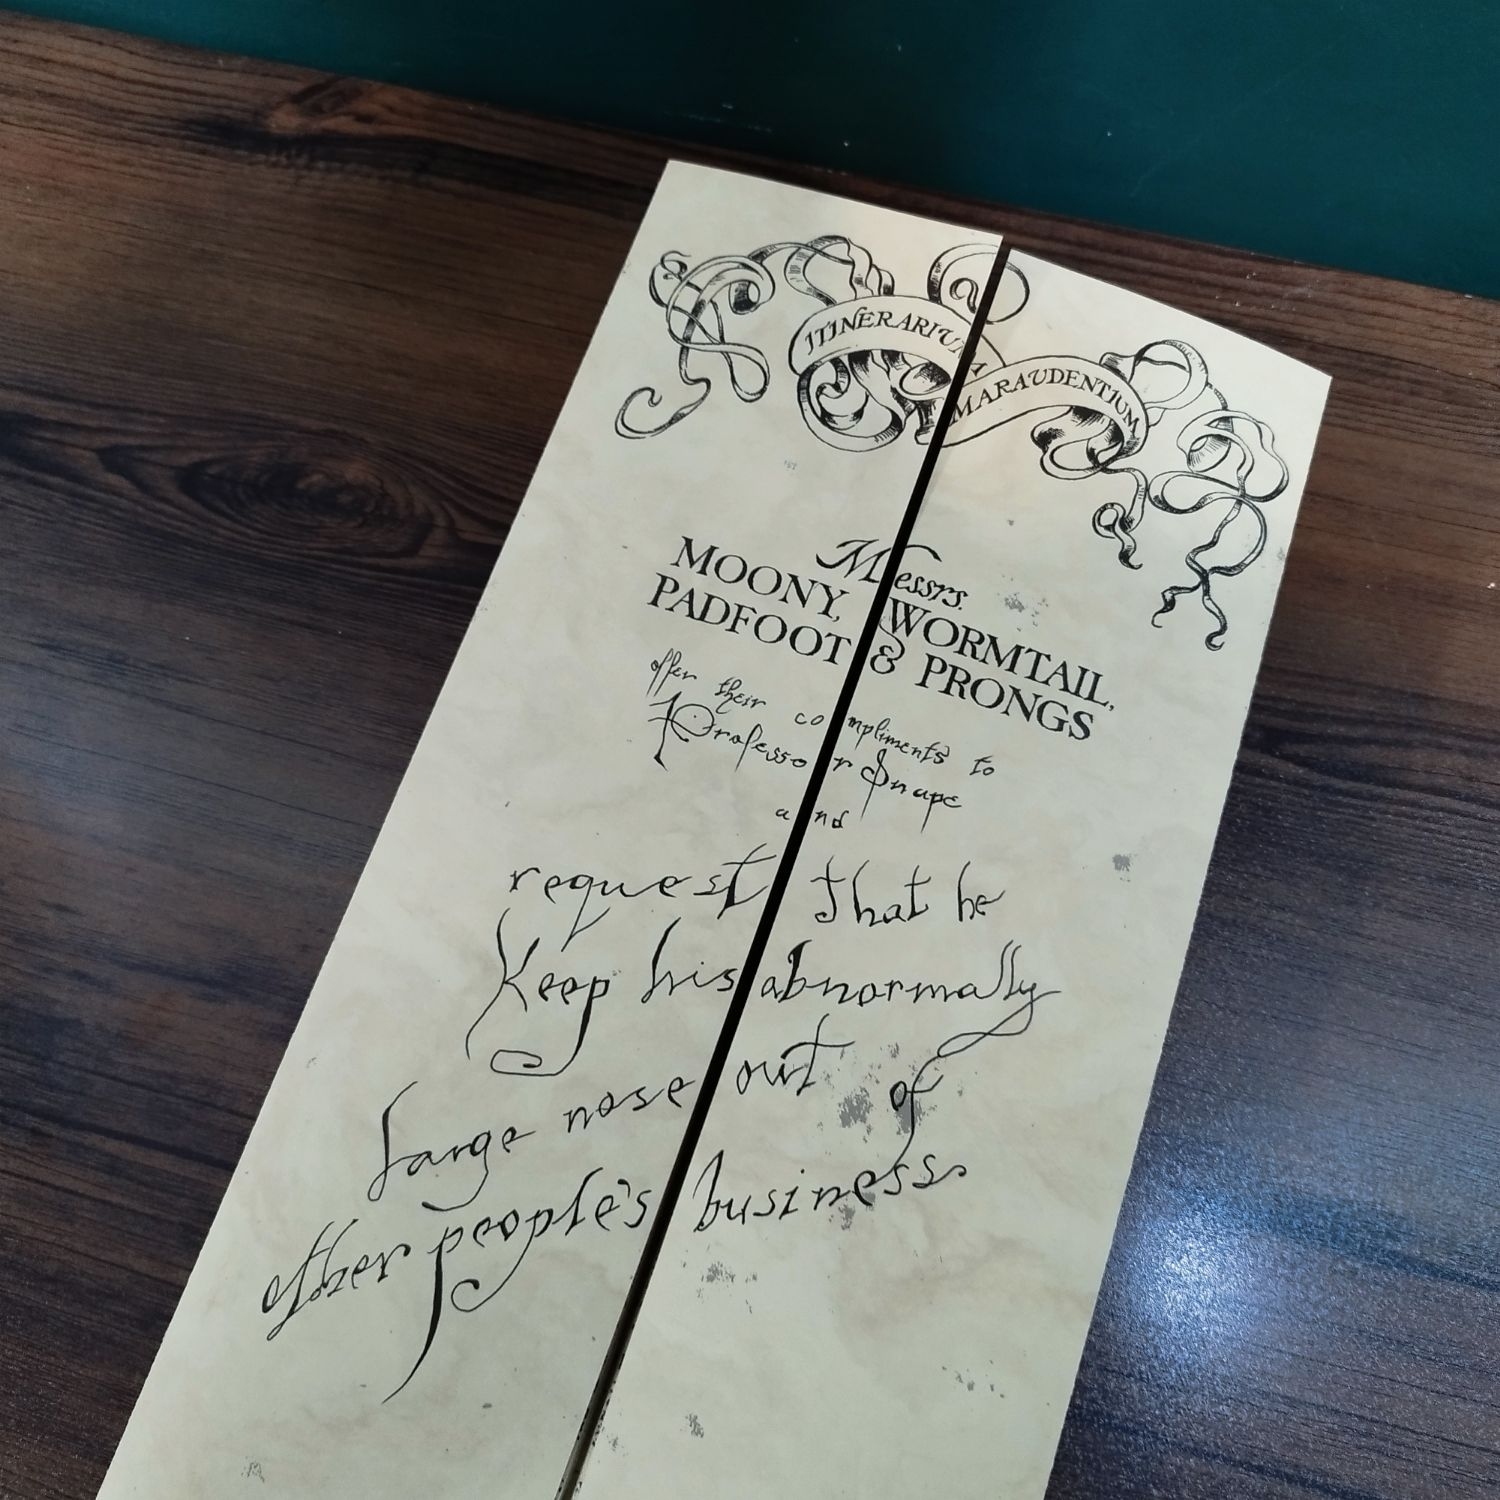 ITINERARIUM
MARAUDENTIUM
Messrs.
MOONY, WORMTAIL,
PADFOOT & PRONGS
offer their compliments to
Professor Snape
and
request that he
Keep his abnormally
large nose out of
other people's business.